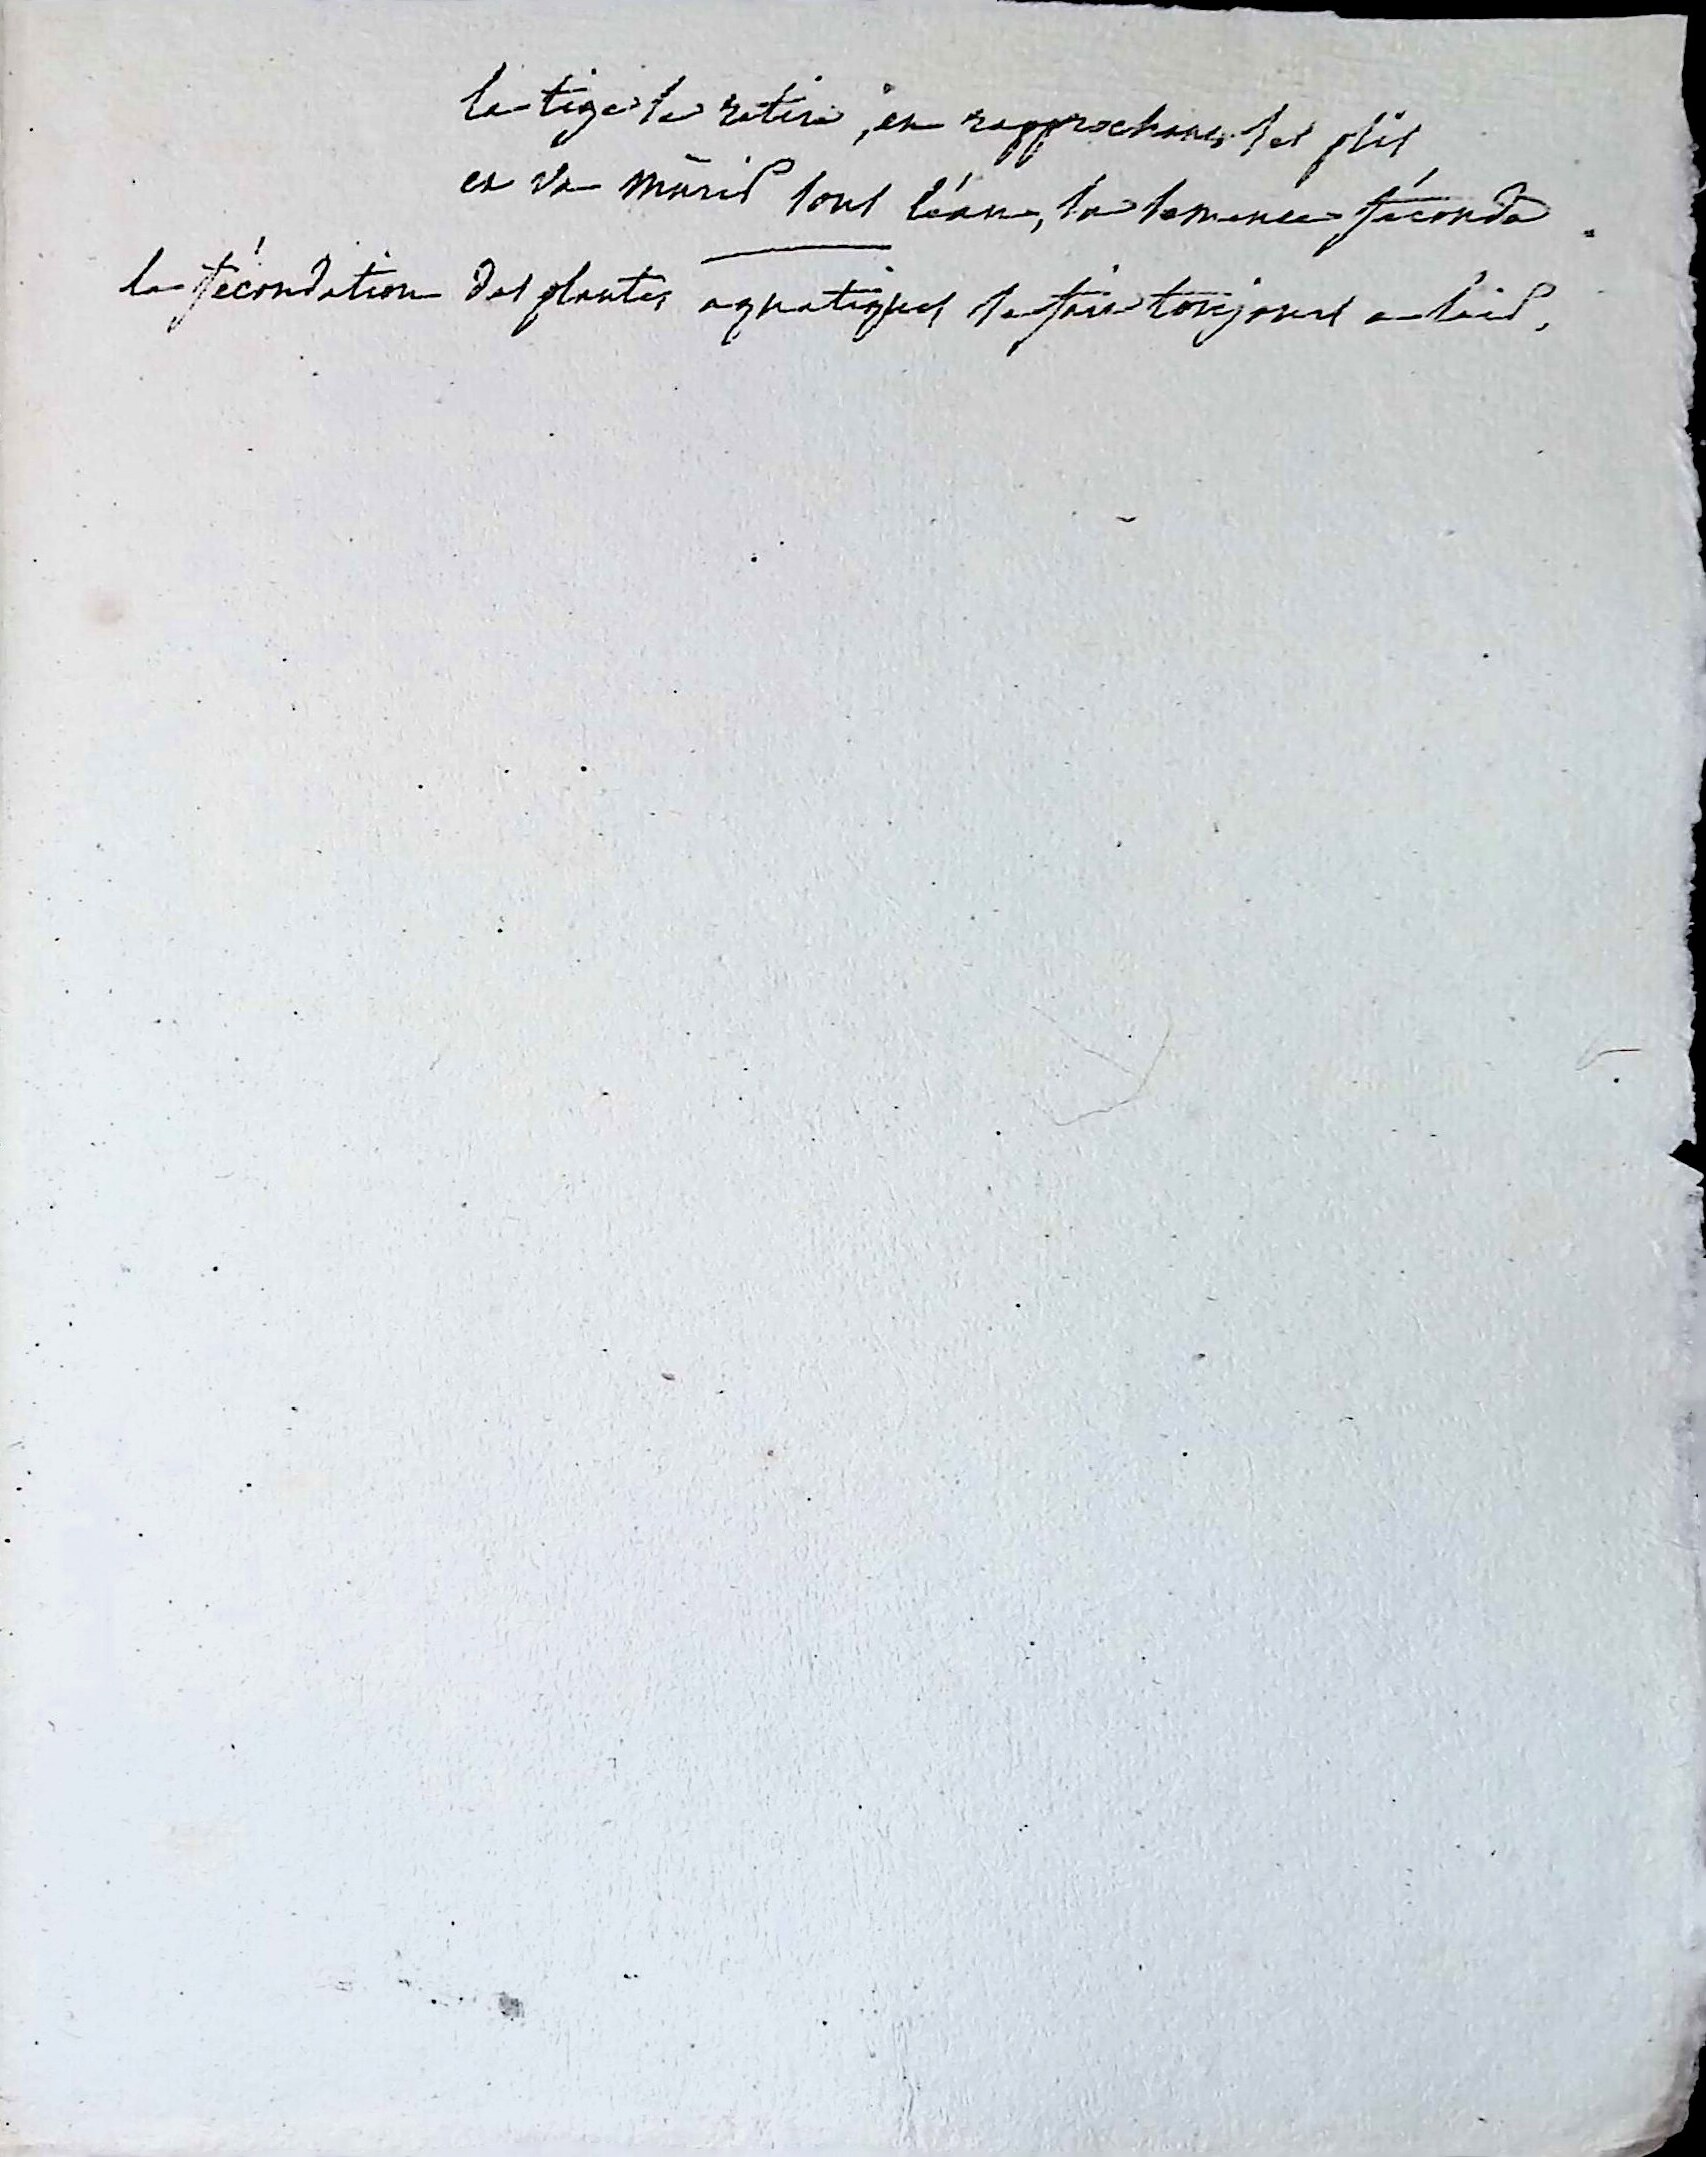 la tige se retire, en rapprochant ses plis
et va mûrir sous l'eau, sa semence féconde.
la fécondation des plantes aquatiques se fait toujours a l'air.